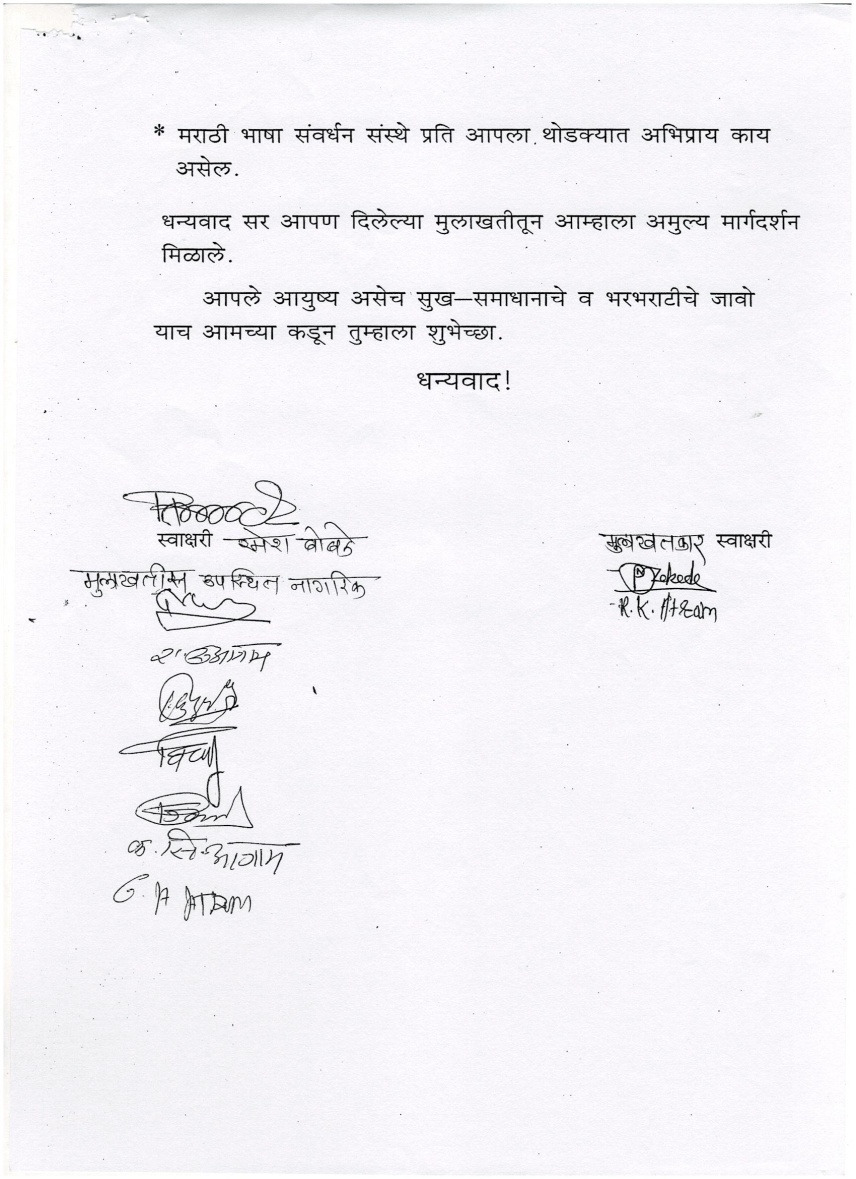 * मराठी भाषा संवर्धन संस्थे प्रति आपला थोडक्यात अभिप्राय काय
असेल.
धन्यवाद सर आपण दिलेल्या मुलाखतीतून आम्हाला अमुल्य मार्गदर्शन
मिळाले.
आपले आयुष्य असेच सुख–समाधानाचे व भरभराटीचे जावो
याच आमच्या कडून तुम्हाला शुभेच्छा.
धन्यवाद!
स्वाक्षरी रमेश बोबडे
मुलाखतकार स्वाक्षरी
मुलाखतीस उपस्थित नागरिक
R. K. Atram